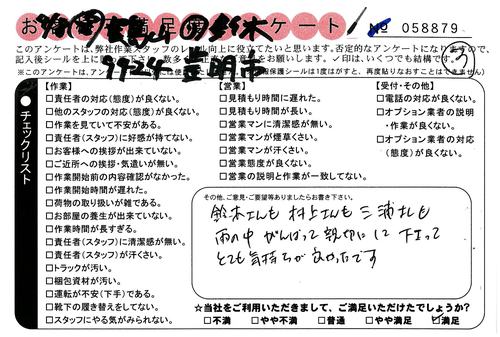 お客様満足度アンケート № 058879
このアンケートは、弊社作業スタッフのレベル向上に役立てたいと思います。否定的なアンケートになりますので、
記入後シールを上に
お願いします。✓印は、いくつでも結構です。
9724 豊明市
鈴木
チェックリスト
【作業】
□責任者の対応(態度)が良くない。
□他のスタッフの対応(態度)が良くない。
□作業を見ていて不安がある。
□責任者(スタッフ)に好感が持てない。
□お客様への挨拶が出来ていない。
□ご近所への挨拶・気遣いが無い。
□作業開始前の内容確認がなかった。
□作業開始時間が遅れた。
□荷物の取り扱いが雑である。
□お部屋の養生が出来ていない。
□作業時間が長すぎる。
□責任者(スタッフ)に清潔感が無い。
□責任者(スタッフ)が汗くさい。
□トラックが汚い。
□梱包資材が汚い。
□運転が不安(下手)である。
□靴下の履き替えをしてない。
□スタッフにやる気がみられない。
【営業】
□見積もり時間に遅れた。
□見積もり時間が長い。
□営業マンに清潔感が無い。
□営業マンが煙草くさい。
□営業マンが汗くさい。
□営業態度が良くない。
□営業の説明と作業が一致してない。
【受付・その他】
□電話の対応が良くない。
□オプション業者の説明
・作業が良くない。
□オプション業者の対応
(態度)が良くない。
その他、ご意見・ご要望等ありましたらお書き下さい。
鈴木さんも 村上さんも 三浦さんも
雨の中 がんばって 親切にして 下さって
とても気持ちが よかったです
☆当社をご利用いただきまして、ご満足いただけたでしょうか?
□不満 □やや不満 □普通 □やや満足 ☑満足